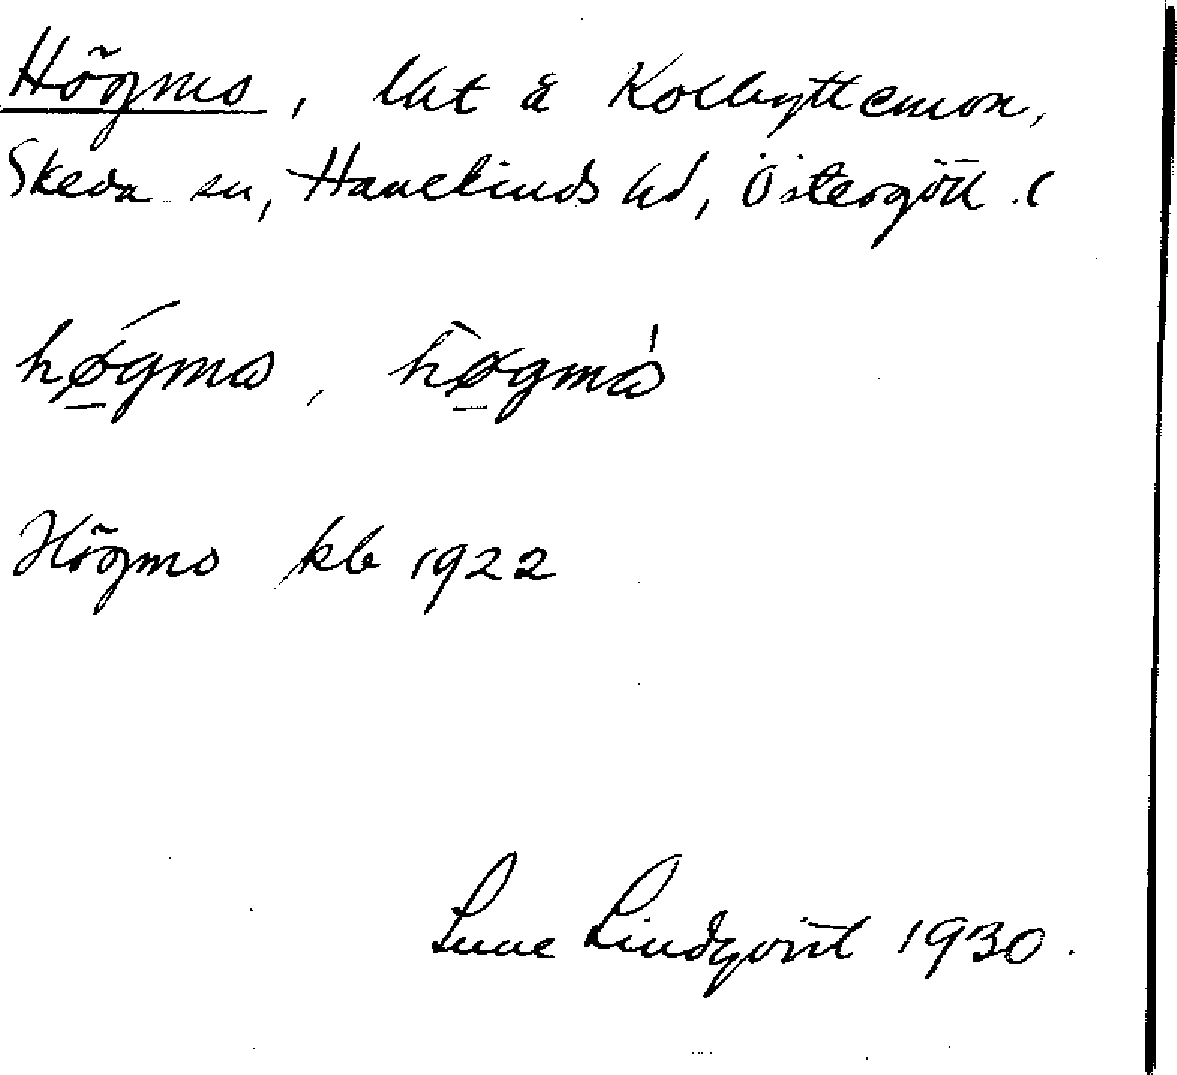 Högmo, lht å Kolbyttemon,
Skeda sn, Hanekinds hd, Östergötl. l
høgmɷ, høgmɷ̀
Högmo kb 1922
Sune Lindqvist 1930.